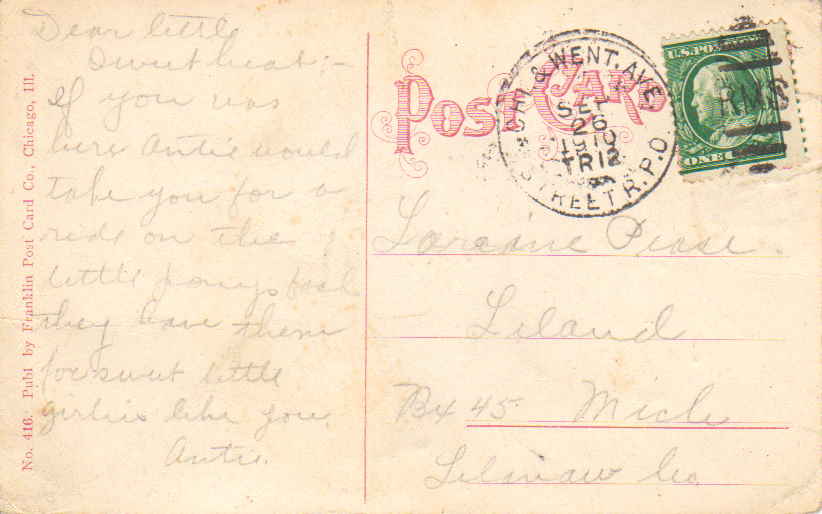 Dear little
Sweetheart:-
If you was
here Antie would
take you for a
ride on the
little ponys back
they have them
for sweet little
girlies like you.
Antie.
No. 416. Publ by Franklin Post Card Co., Chicago, Ill.
POST CARD
CHI. & WENT. AVE.
SEP
26
1910
TR 12
STREET R.P.O.
U.S. POSTAGE
RMS
ONE
Loraine Pease.
Leland
Bx 45 Mich
Lelenaw Co.